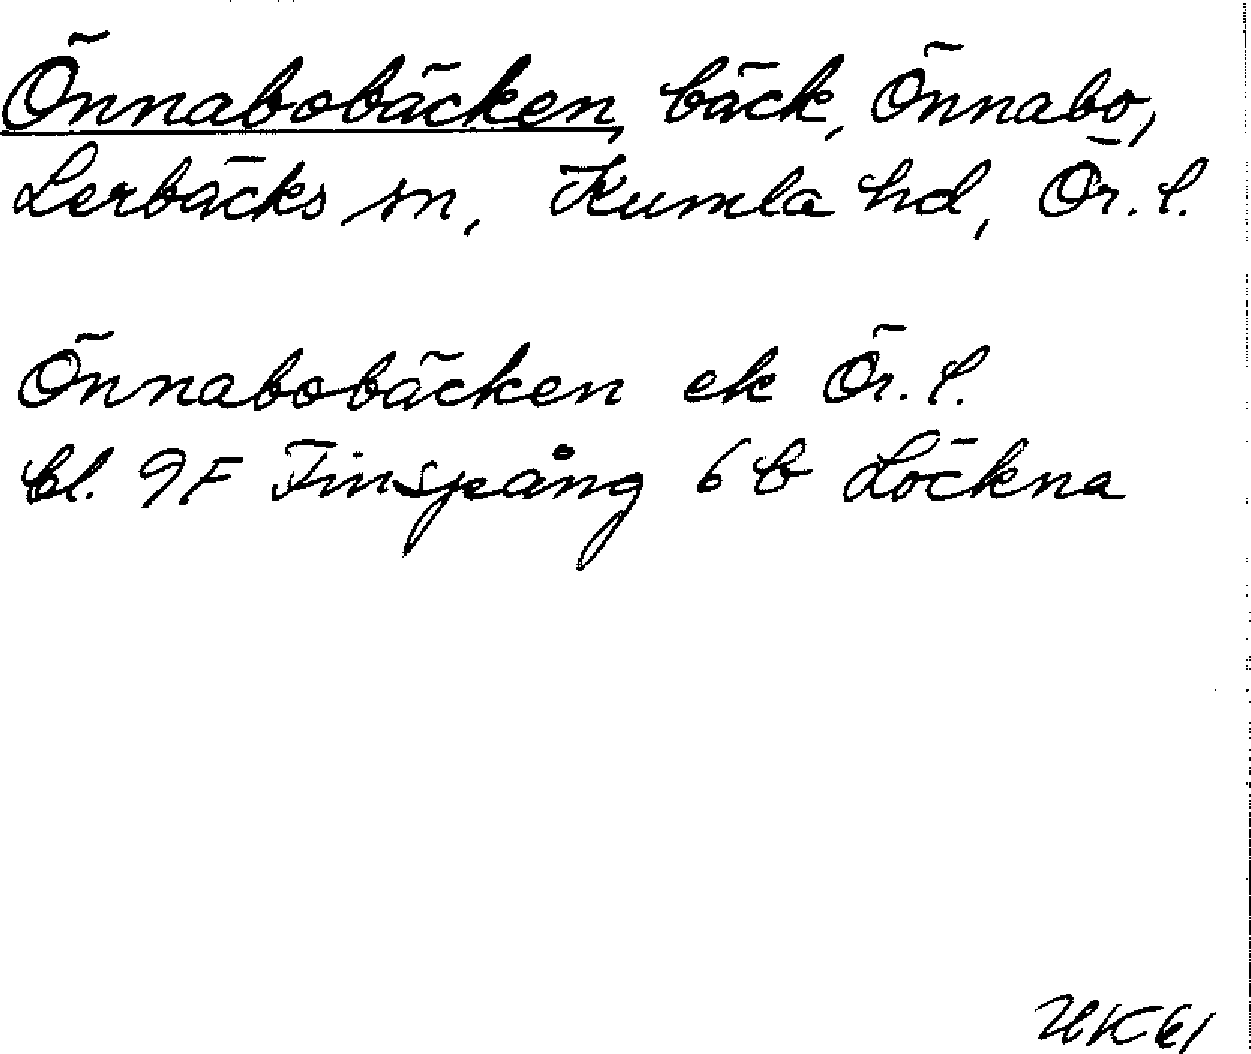 Önnabobäcken, bäck, Önnabo,
Lerbäcks sn, Kumla hd, Ör. l.
Önnabobäcken ek Ör. l.
bl. 9F Finspång 6 b Löckna
HK 61